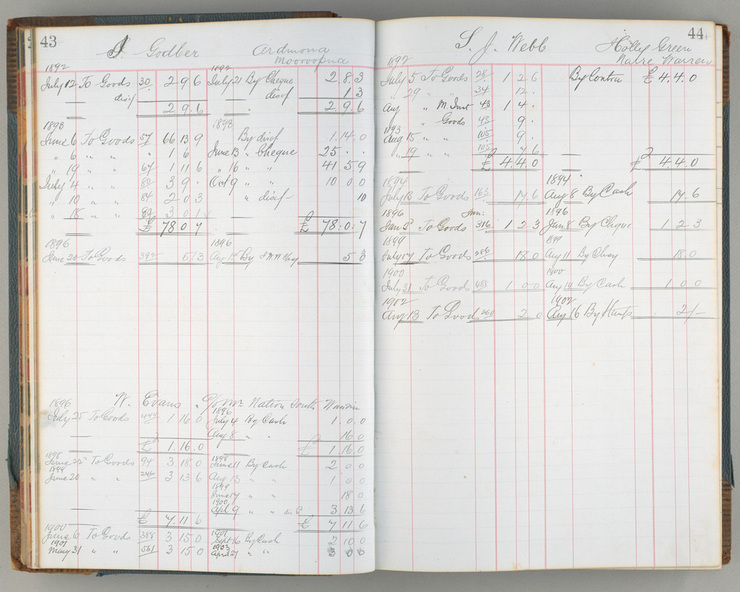 43
J Godber Ardmona
Mooroopna
1892 1892
July 12 To Goods 30 2 9 6 July 21 By Cheque 2 8 3
" disf " disf 1 3
2 9 6 2 9 6
1893 1893
June 6 To Goods 57 66 13 9 By disf 1 14 0
" 6 " " 1 6 June 13 " Cheque 25
" 19 " " 67 1 11 6 " 16 " " 41 5 9
July 4 " " 3 9 Oct 9 " " 10 0 0
" 10 " " 84 2 0 3 " disf 10
" 18 " "
£ 78 0 7 £ 78 0 7
1896 1896
June 20 To Goods 5 3 Aug 19 By 5 3
W. Evans Mr Nation
1896 1896
July 25 To Goods 1 16 0 July 4 By Cash 1 0 0
Aug 8 " " 16 0
£ 1 16 0 £ 1 16 0
1898 1898
June 25 To Goods 94 3 18 0 June 11 By Cash 2 0 0
1899
June 20 " " 246 3 13 6 Aug 13 " " 1 0 0
1899
June 17 " " 18 0
1900
Apl 9 " " 3 13 6
£ 7 11 6 £ 7 11 6
1900 1901
June 13 To Goods 388 3 15 0 Sept 16 By Cash 2 10 0
1901 1903
May 31 " " 561 3 15 0 April 27 " "
44
S. J. Webb Holly Green
Narre Warren
1892
July 5 To Goods 28 1 2 6 By Contra £ 4 4 0
" 29 " " 34 12
Aug " M Inst 43 1 4
" Goods 43 9
1893
Aug 15 " " 105 9
" 19 " " 105 7 6
£ 4 4 0 £ 4 4 0
1894 1894
July 18 To Goods 165 17 6 Aug 8 By Cash 17 6
1896 Jun: 1896
Jan 8 To Goods 316 1 2 3 Jun 8 By Cheque 1 2 3
1899 1899
July 17 To Goods 256 18 0 Aug 11 By Cheq 18 0
1900 1900
July 21 To Goods 403 1 0 0 Aug 14 By Cash 1 0 0
1902 1902
Aug 13 To Goods 2 0 Aug 16 By 2/-